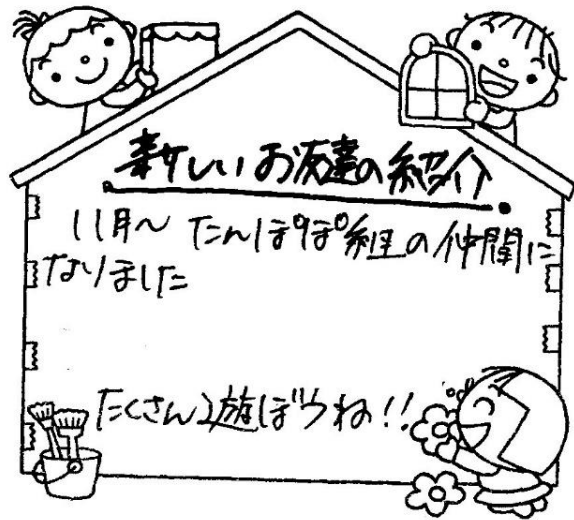 新しいお友達の紹介
11月〜 たんぽぽ組の仲間に
なりました
たくさん遊ぼうね!!